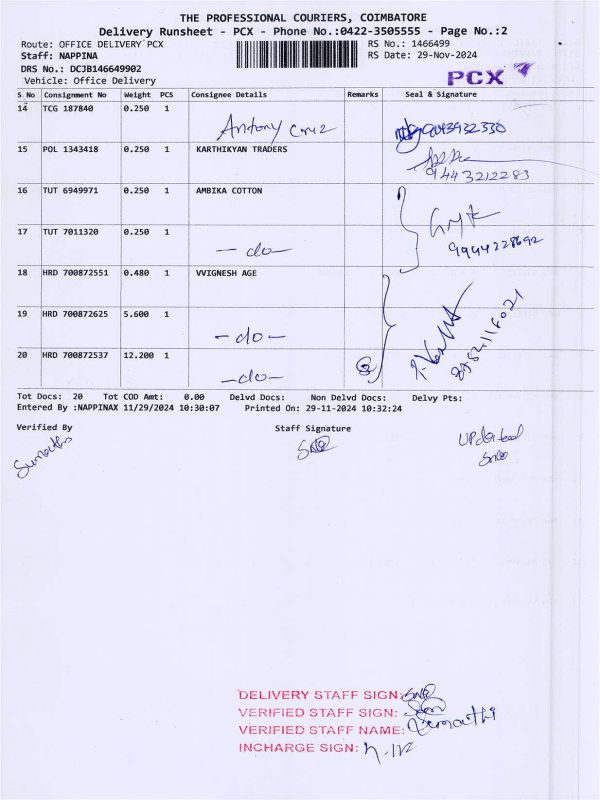 THE PROFESSIONAL COURIERS, COIMBATORE
Delivery Runsheet - PCX - Phone No.:0422-3505555 - Page No.:2
Route: OFFICE DELIVERY PCX RS No.: 1466499
Staff: NAPPINA RS Date: 29-Nov-2024
DRS No.: DCJB146649902
Vehicle: Office Delivery PCX
S No Consignment No Weight PCS Consignee Details Remarks Seal & Signature
14 TCG 187840 0.250 1
Antony Cruz 9043932330
15 POL 1343418 0.250 1 KARTHIKYAN TRADERS
9443212283
16 TUT 6949971 0.250 1 AMBIKA COTTON
17 TUT 7011320 0.250 1
- do - 9944228692
18 HRD 700872551 0.480 1 VVIGNESH AGE
19 HRD 700872625 5.600 1
- do -
20 HRD 700872537 12.200 1 3
- do -
Tot Docs: 20 Tot COD Amt: 0.00 Delvd Docs: Non Delvd Docs: Delvy Pts:
Entered By :NAPPINAX 11/29/2024 10:30:07 Printed On: 29-11-2024 10:32:24
Verified By Staff Signature
Sumathi
DELIVERY STAFF SIGN:
VERIFIED STAFF SIGN:
VERIFIED STAFF NAME: Sumathi
INCHARGE SIGN: